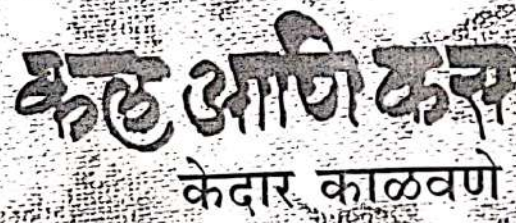 कल आणि कस
केदार काळवणे